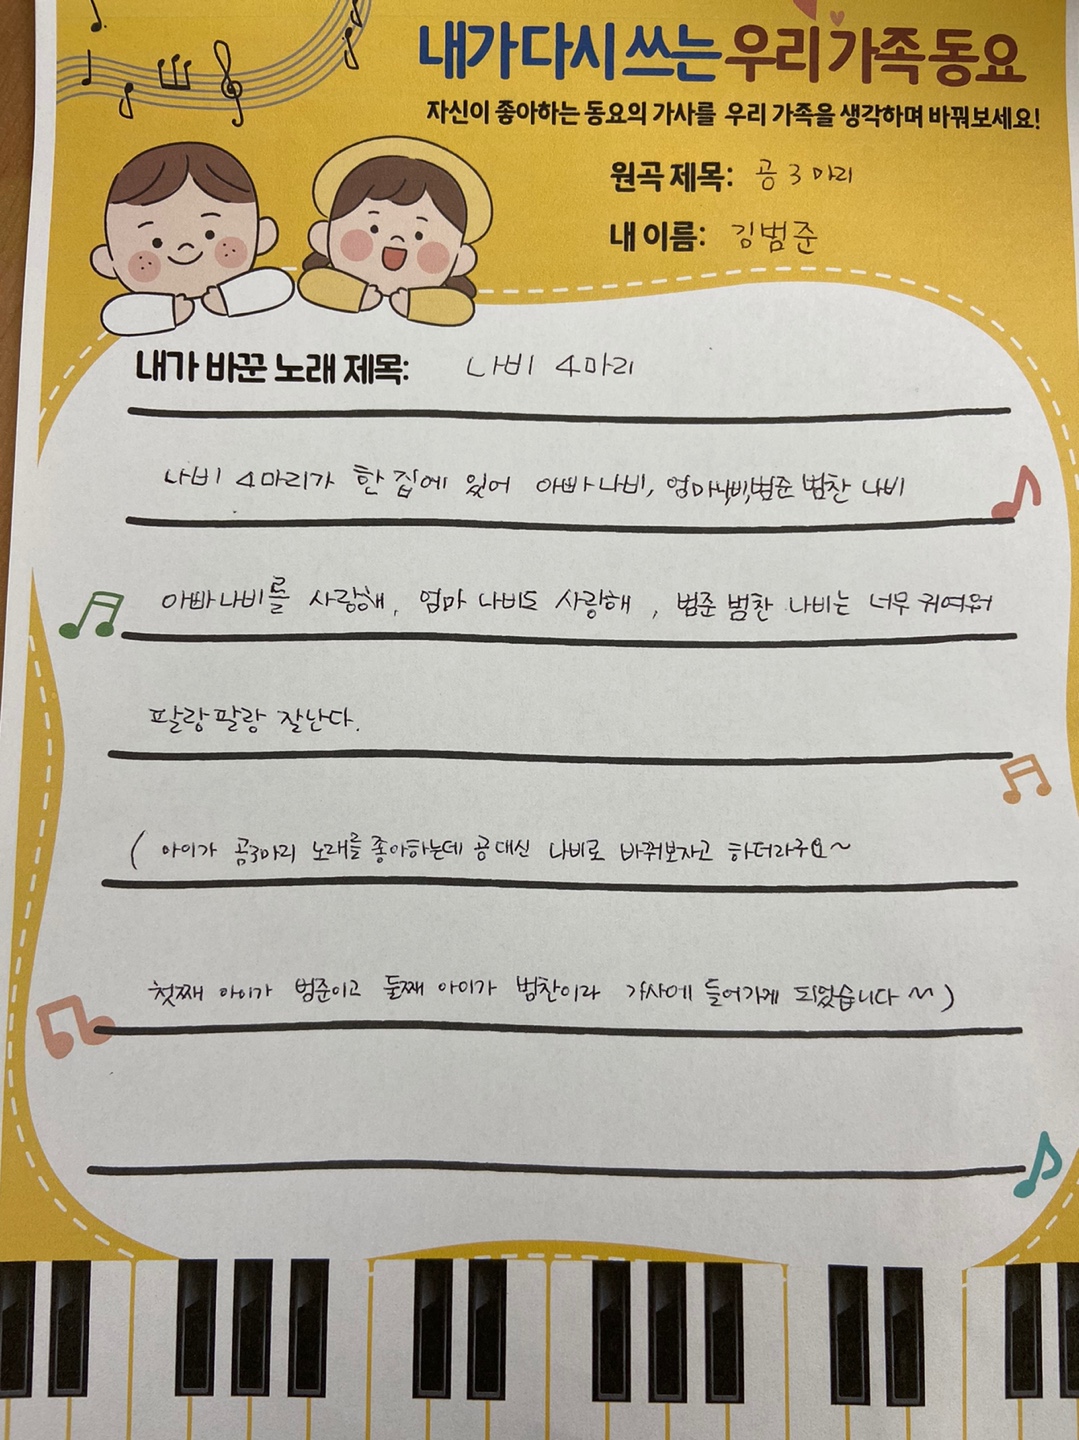 내가 다시 쓰는 우리 가족 동요
자신이 좋아하는 동요의 가사를 우리 가족을 생각하며 바꿔보세요!
원곡 제목: 곰 3마리
내 이름: 김범준
내가 바꾼 노래 제목: 나비 4마리
나비 4마리가 한 집에 있어 아빠나비, 엄마나비, 범준 범찬 나비
아빠나비를 사랑해, 엄마 나비도 사랑해, 범준 범찬 나비는 너무 귀여워
팔랑팔랑 잘난다.
( 아이가 곰3마리 노래를 좋아하는데 곰 대신 나비로 바꿔보자고 하더라구요~
첫째 아이가 범준이고 둘째 아이가 범찬이라 가사에 들어가게 되었습니다 ~)